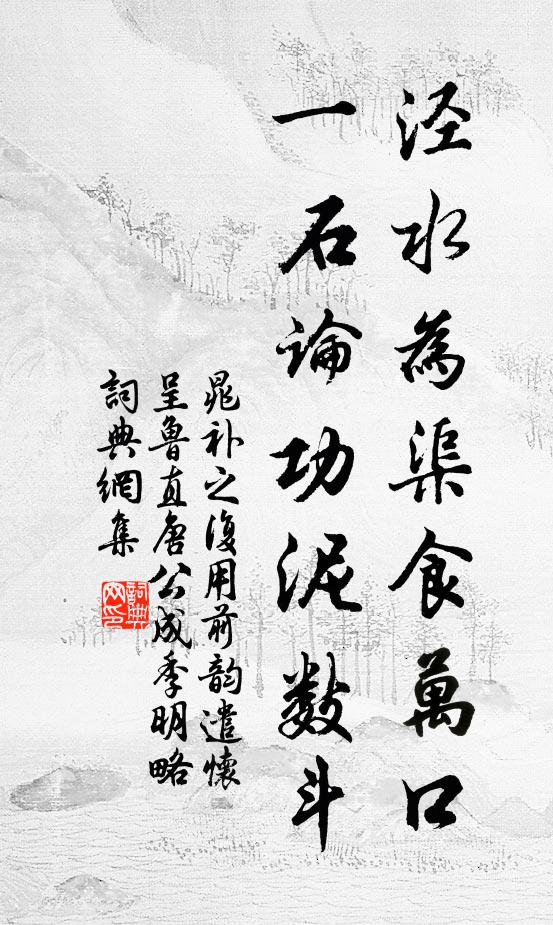 泾水為渠食萬口
一石論功泥数斗
晁补之復用前韵遣懷
呈魯直唐公成季明略
詞典網集
詞典網印